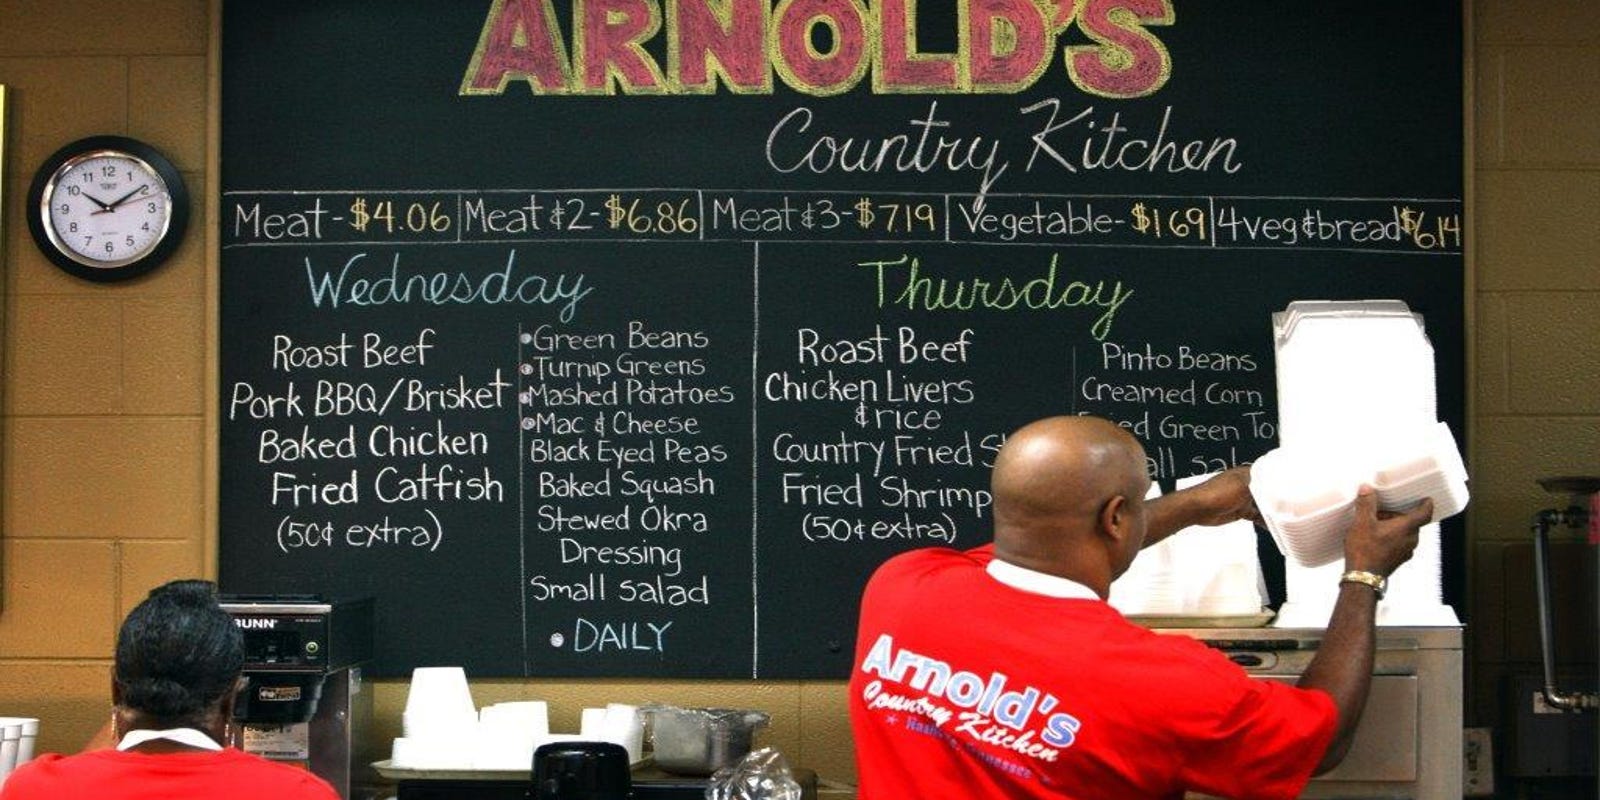 ARNOLD'S
Country Kitchen
Meat-$4.06 Meat &2-$6.86 Meat &3-$7.19 Vegetable-$1.69 4veg&bread $6.14
Wednesday
Roast Beef
Pork BBQ/Brisket
Baked Chicken
Fried Catfish
(50¢ extra)
•Green Beans
•Turnip Greens
•Mashed Potatoes
•Mac & Cheese
Black Eyed Peas
Baked Squash
Stewed Okra
Dressing
Small salad
• DAILY
Thursday
Roast Beef
Chicken Livers
& rice
Country Fried S
Fried Shrimp
(50¢ extra)
Pinto Beans
Creamed Corn
Green To
all sala
12 1 2 3 4 5 6 7 8 9 10 11
BUNN
Arnold's
Country Kitchen
Tennessee